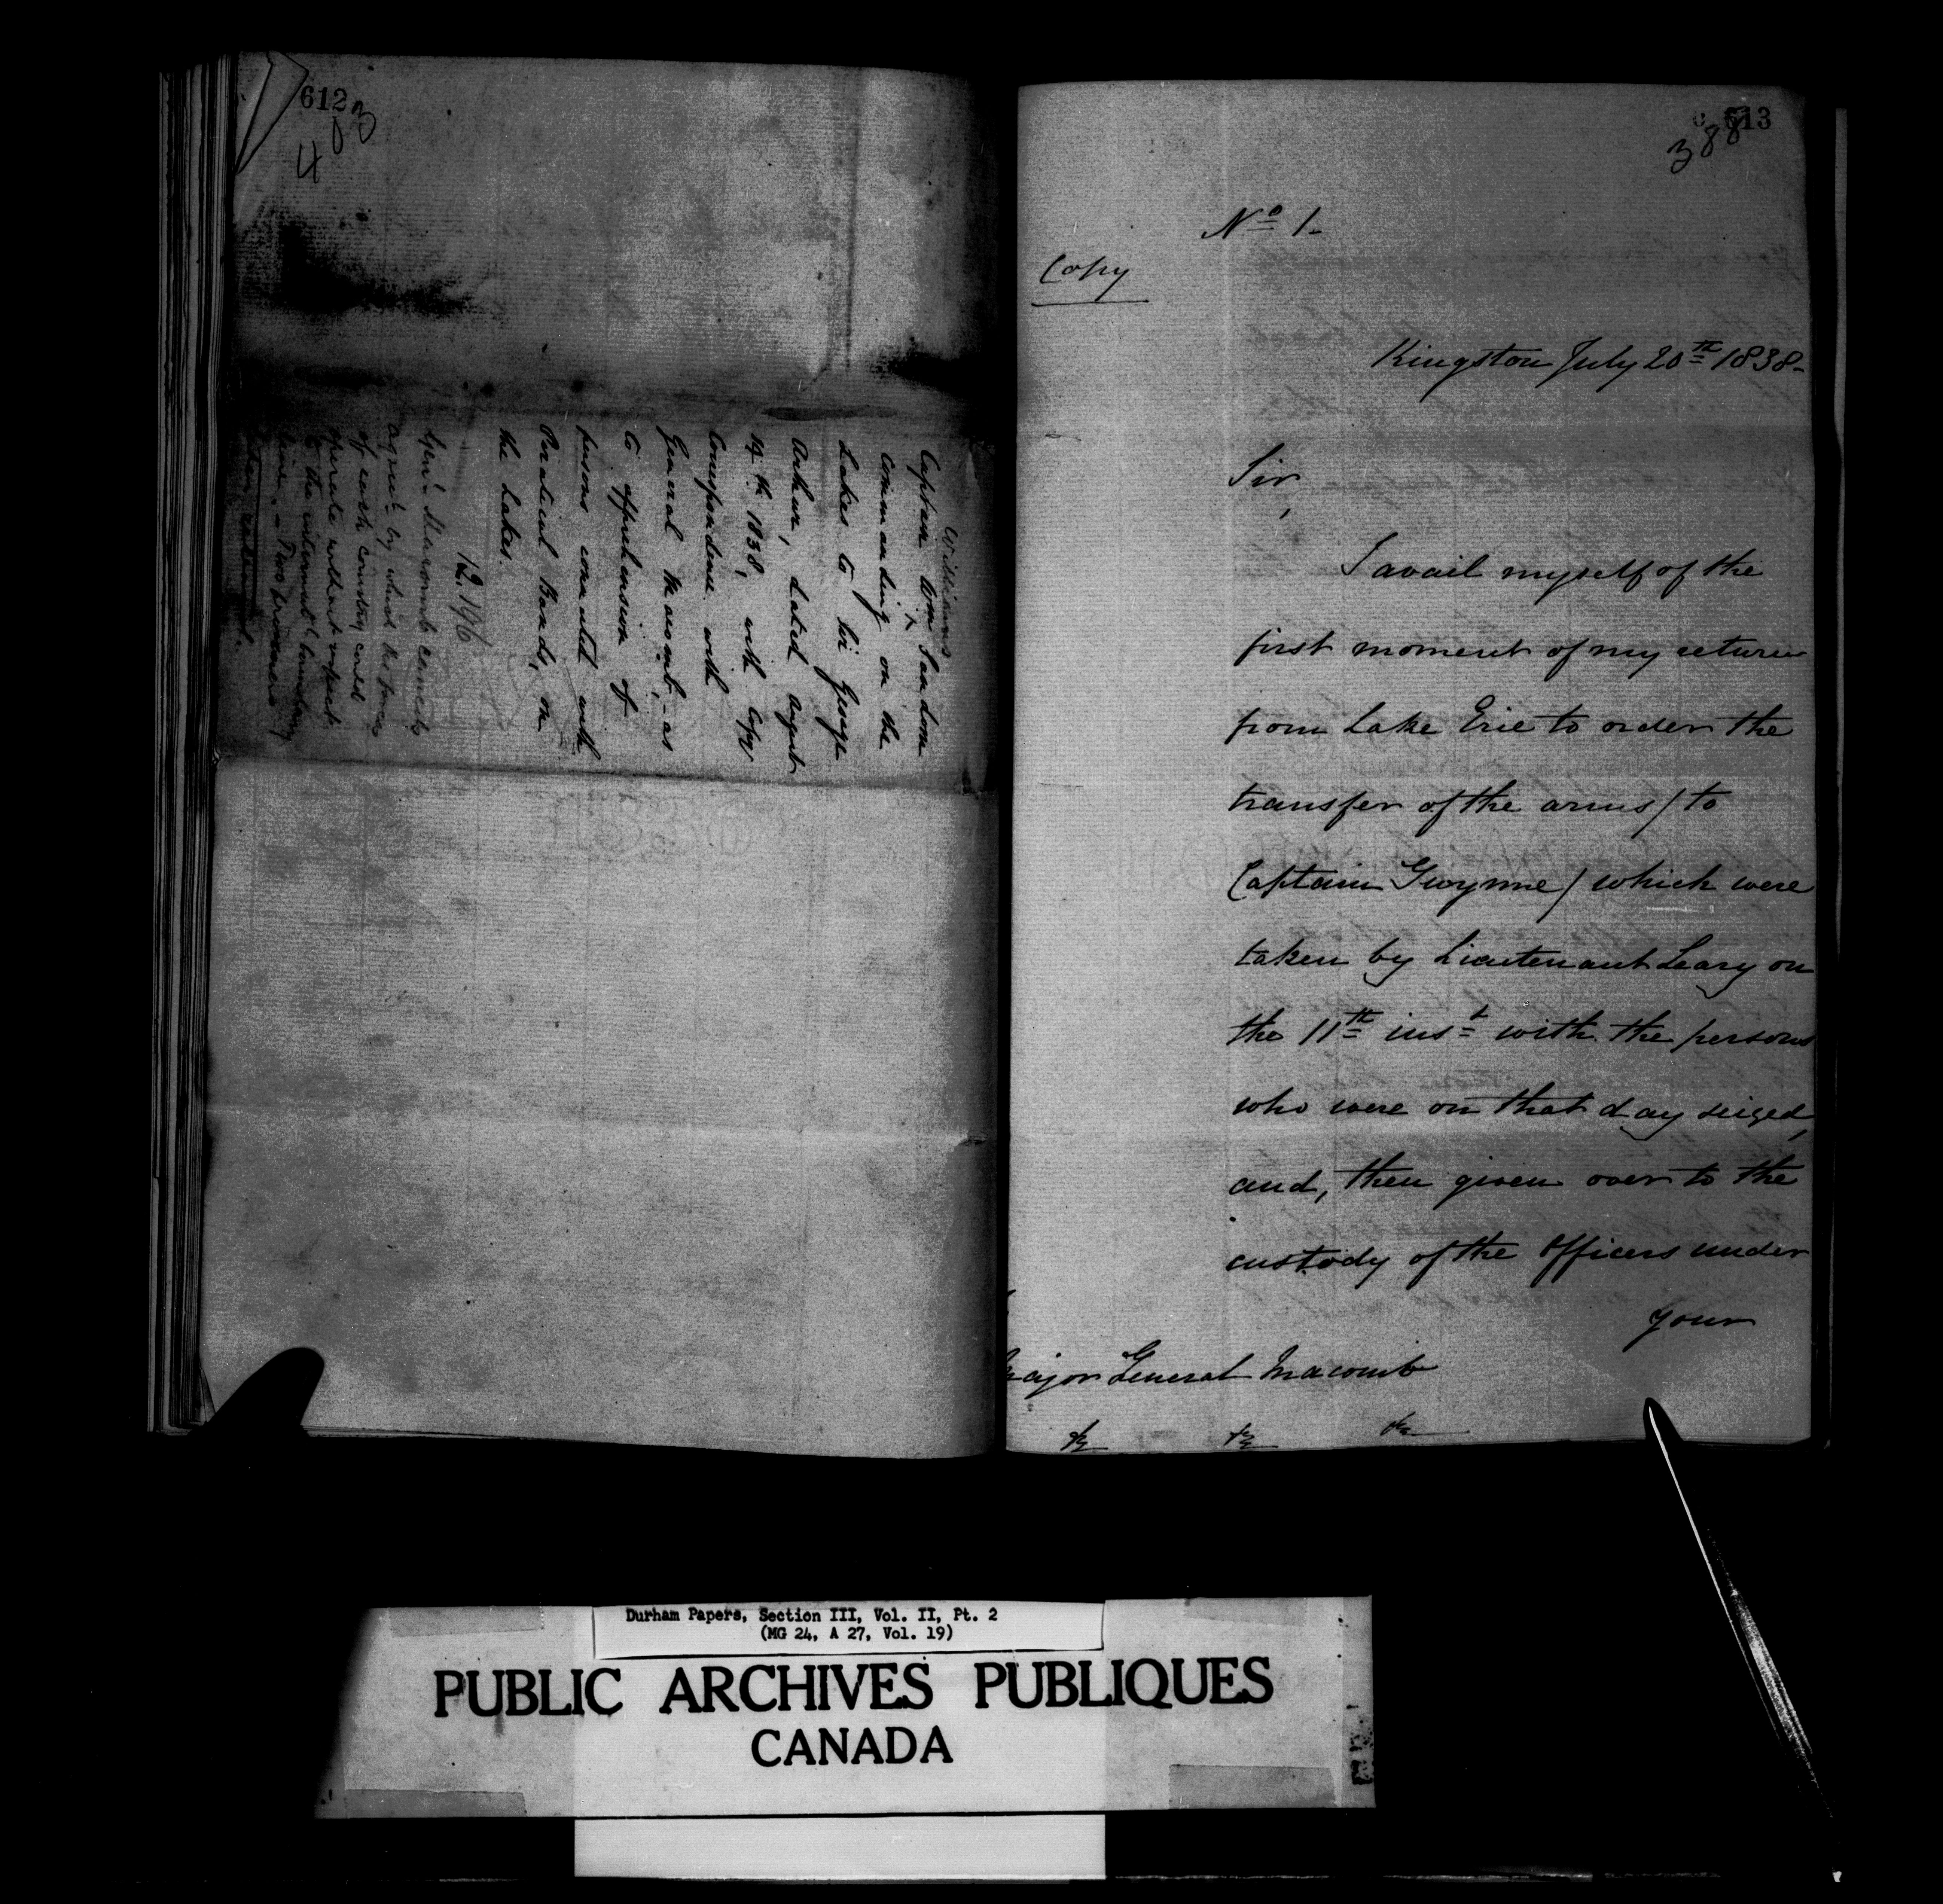 612
403
Williams
Captain Wm Sandom
commanding on the
Lakes to Sir George
Arthur, dated August
14th 1838, with Copy
Correspondence with
General Macomb, as
to apprehension of
persons connected with
Piratical Bands, on
the Lakes.
12.196
Genl. Macomb
agreet. by which the force
of each country could
operate without respect
to the internatl. boundary
line. - Two
613
388
No 1.
Copy
Kingston July 20th 1838-
Sir,
I avail myself of the
first moment of my return
from Lake Erie to order the
transfer of the arms / to
Captain Gwynne / which were
taken by Lieutenant Leary on
the 11th inst with the persons
who were on that day seized,
and, then given over to the
custody of the Officers under
your
Major General Macomb
&c &c &c
Durham Papers, Section III, Vol. II, Pt. 2
(MG 24, A 27, Vol. 19)
PUBLIC ARCHIVES PUBLIQUES
CANADA